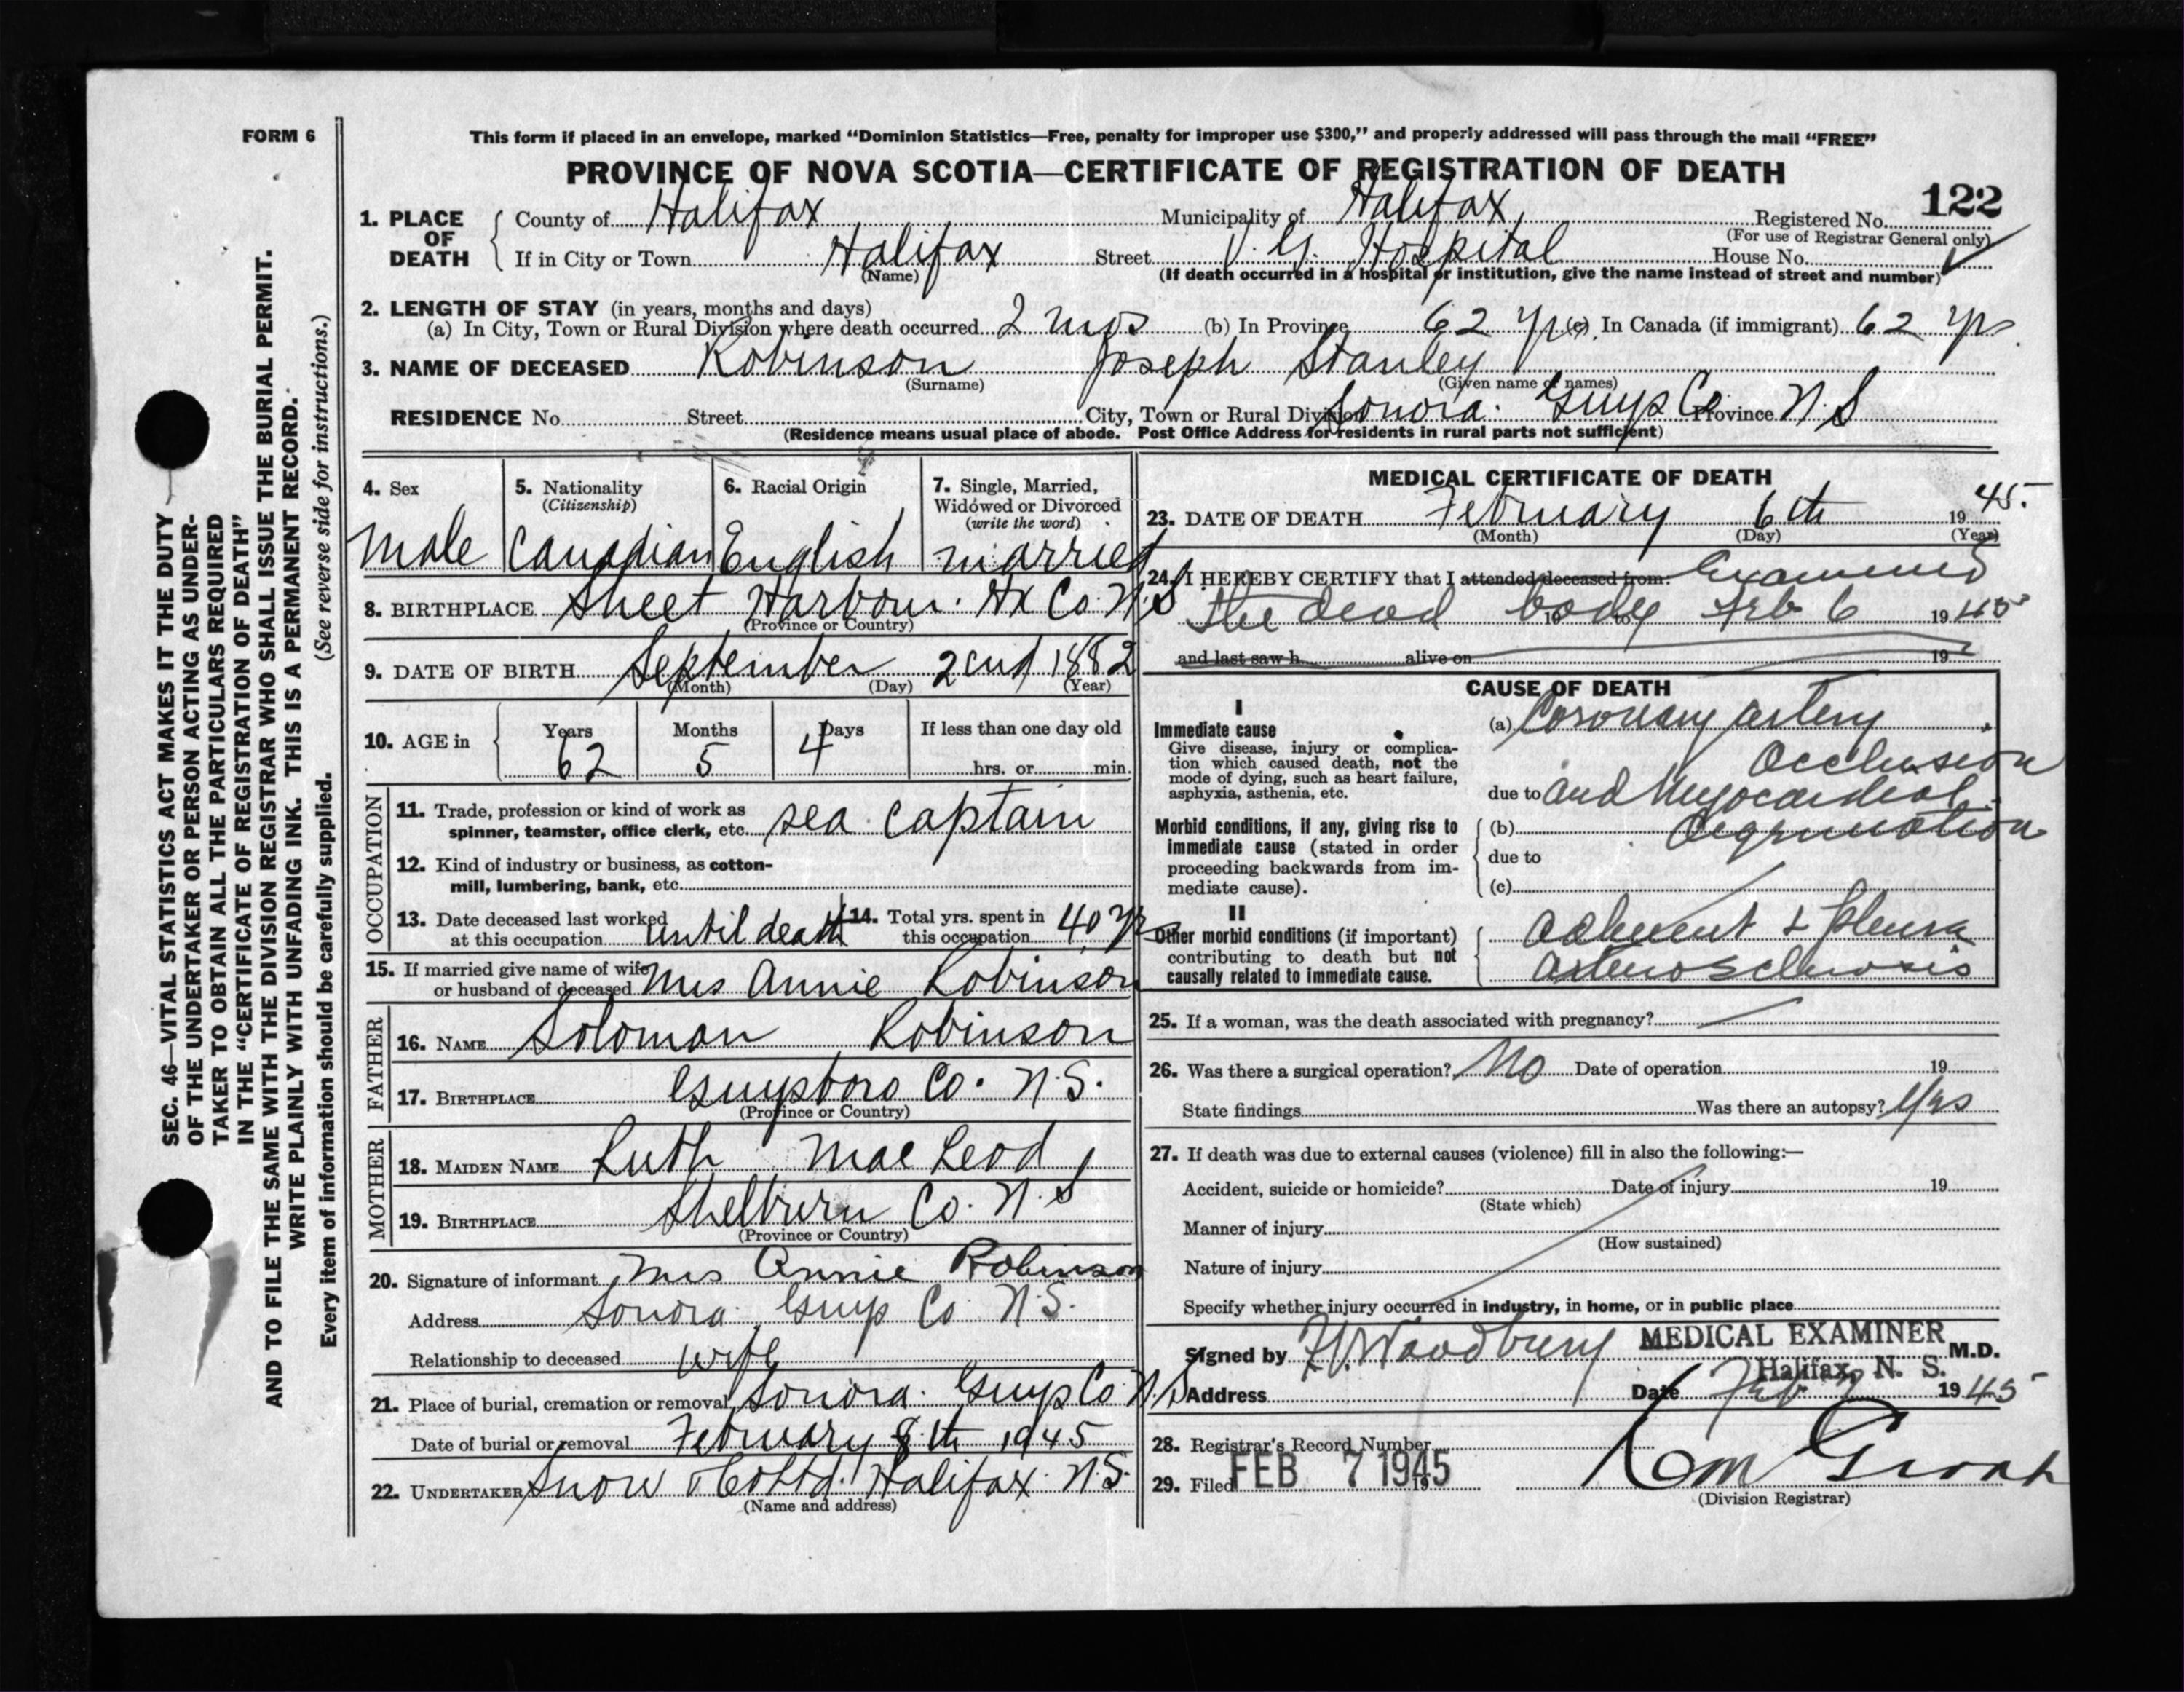 FORM 6
This form if placed in an envelope, marked “Dominion Statistics—Free, penalty for improper use $300,” and properly addressed will pass through the mail “FREE”
PROVINCE OF NOVA SCOTIA—CERTIFICATE OF REGISTRATION OF DEATH
122
1. PLACE OF DEATH
County of Halifax Municipality of Halifax Registered No.
(For use of Registrar General only)
If in City or Town Halifax Street V. G. Hospital House No.
(Name) (If death occurred in a hospital or institution, give the name instead of street and number)
2. LENGTH OF STAY (in years, months and days)
(a) In City, Town or Rural Division where death occurred 2 mos (b) In Province 62 yrs (c) In Canada (if immigrant) 62 yrs
3. NAME OF DECEASED Robinson Joseph Stanley
(Surname) (Given name or names)
RESIDENCE No. Street City, Town or Rural Division Sonora. Guys Co Province N.S
(Residence means usual place of abode. Post Office Address for residents in rural parts not sufficient)
4. Sex
male
5. Nationality
(Citizenship)
Canadian
6. Racial Origin
English
7. Single, Married,
Widowed or Divorced
(write the word)
married
8. BIRTHPLACE Sheet Harbour. Hx Co. N.S
(Province or Country)
9. DATE OF BIRTH September 2cnd 1882
(Month) (Day) (Year)
10. AGE in
Years Months Days If less than one day old
62 5 4 hrs. or min.
OCCUPATION
11. Trade, profession or kind of work as
spinner, teamster, office clerk, etc. sea captain
12. Kind of industry or business, as cotton-
mill, lumbering, bank, etc.
13. Date deceased last worked
at this occupation until death
14. Total yrs. spent in
this occupation 40 yrs
15. If married give name of wife
or husband of deceased Mrs Annie Robinson
FATHER
16. NAME Soloman Robinson
17. BIRTHPLACE Guysboro Co. N.S.
(Province or Country)
MOTHER
18. MAIDEN NAME Ruth MacLeod
19. BIRTHPLACE Shelburn Co. N.S
(Province or Country)
20. Signature of informant Mrs Annie Robinson
Address Sonora. Guys Co N.S.
Relationship to deceased wife
21. Place of burial, cremation or removal Sonora. Guys Co N.S
Date of burial or removal February 8th 1945
22. UNDERTAKER Snow & Co Ltd. Halifax. N.S.
(Name and address)
MEDICAL CERTIFICATE OF DEATH
23. DATE OF DEATH February 6th 19 45.
(Month) (Day) (Year)
24. I HEREBY CERTIFY that I attended deceased from: Examined
the dead body Feb 6 19 45
19 to
and last saw h alive on 19
CAUSE OF DEATH
I
Immediate cause
Give disease, injury or complica-
tion which caused death, not the
mode of dying, such as heart failure,
asphyxia, asthenia, etc.
(a) Coronary artery
Occlusion
due to and Myocardial
Morbid conditions, if any, giving rise to
immediate cause (stated in order
proceeding backwards from im-
mediate cause).
(b) degeneration
due to
(c)
II
Other morbid conditions (if important)
contributing to death but not
causally related to immediate cause.
adherent L pleura
arteriosclerosis
25. If a woman, was the death associated with pregnancy?
26. Was there a surgical operation? No Date of operation 19
State findings Was there an autopsy? Yes
27. If death was due to external causes (violence) fill in also the following:—
Accident, suicide or homicide? Date of injury 19
(State which)
Manner of injury
(How sustained)
Nature of injury
Specify whether injury occurred in industry, in home, or in public place
Signed by Woodbury MEDICAL EXAMINER M.D.
Halifax, N. S.
Address Date Feb 7 19 45
28. Registrar's Record Number
29. Filed FEB 7 1945 19
(Division Registrar)
SEC. 46—VITAL STATISTICS ACT MAKES IT THE DUTY
OF THE UNDERTAKER OR PERSON ACTING AS UNDER-
TAKER TO OBTAIN ALL THE PARTICULARS REQUIRED
IN THE “CERTIFICATE OF REGISTRATION OF DEATH”
AND TO FILE THE SAME WITH THE DIVISION REGISTRAR WHO SHALL ISSUE THE BURIAL PERMIT.
WRITE PLAINLY WITH UNFADING INK. THIS IS A PERMANENT RECORD.
Every item of information should be carefully supplied. (See reverse side for instructions.)